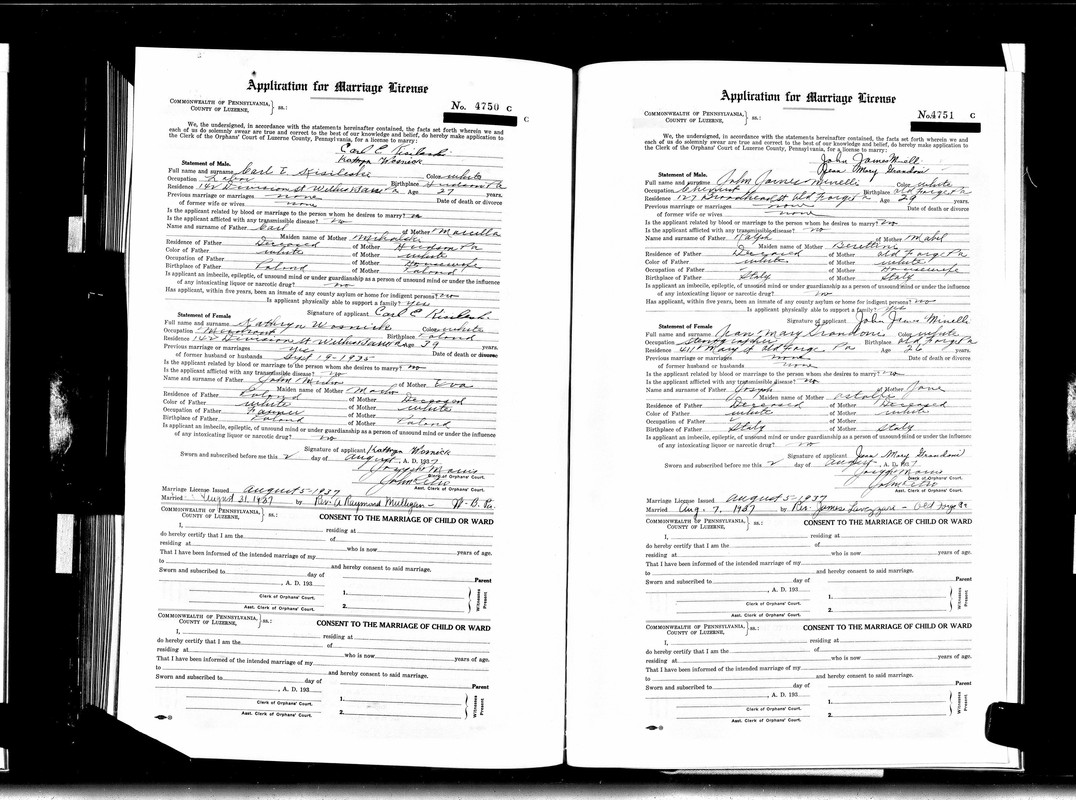 Application for Marriage License
COMMONWEALTH OF PENNSYLVANIA,
COUNTY OF LUZERNE, } ss.:
No. 4750 C
C
We, the undersigned, in accordance with the statements hereinafter contained, the facts set forth wherein we and
each of us do solemnly swear are true and correct to the best of our knowledge and belief, do hereby make application to
the Clerk of the Orphans' Court of Luzerne County, Pennsylvania, for a license to marry:
Carl E
Kathryn Wosnick
Statement of Male.
Full name and surname Carl E. Color white
Occupation Birthplace Hudson Pa
Residence 142 Division St Wilkes Barre Pa Age 27 years.
Previous marriage or marriages none Date of death or divorce
of former wife or wives none
Is the applicant related by blood or marriage to the person whom he desires to marry? no
Is the applicant afflicted with any transmissible disease? no
Name and surname of Father Carl of Mother
Maiden name of Mother
Residence of Father Deceased of Mother Hudson Pa
Color of Father white of Mother white
Occupation of Father of Mother Housewife
Birthplace of Father Poland of Mother Poland
Is applicant an imbecile, epileptic, of unsound mind or under guardianship as a person of unsound mind or under the influence
of any intoxicating liquor or narcotic drug? no
Has applicant, within five years, been an inmate of any county asylum or home for indigent persons? no
Is applicant physically able to support a family? yes
Signature of applicant Carl E
Statement of Female
Full name and surname Kathryn Wosnick Color white
Occupation Birthplace Poland
Residence 142 Division St Wilkes Barre Pa Age 39 years.
Previous marriage or marriages yes Date of death or divorce
of former husband or husbands Sept 19-1935
Is the applicant related by blood or marriage to the person whom she desires to marry? no
Is the applicant afflicted with any transmissible disease? no
Name and surname of Father John of Mother Eva
Maiden name of Mother
Residence of Father Poland of Mother Deceased
Color of Father white of Mother white
Occupation of Father Farmer of Mother
Birthplace of Father Poland of Mother Poland
Is applicant an imbecile, epileptic, of unsound mind or under guardianship as a person of unsound mind or under the influence
of any intoxicating liquor or narcotic drug? no
Signature of applicant Kathryn Wosnick
Sworn and subscribed before me this 2 day of August, A. D. 1937
Joseph
Clerk of Orphans' Court.
John
Asst. Clerk of Orphans' Court.
Marriage License Issued August 5-1937
Married August 31, 1937 by Rev. A Raymond Mulligan - W. B. Pa.
COMMONWEALTH OF PENNSYLVANIA,
COUNTY OF LUZERNE, } ss.:
CONSENT TO THE MARRIAGE OF CHILD OR WARD
I, residing at
do hereby certify that I am the of
residing at who is now years of age.
That I have been informed of the intended marriage of my
to and hereby consent to said marriage.
Sworn and subscribed to day of
Parent
, A. D. 193
1.
Clerk of Orphans' Court.
2.
Asst. Clerk of Orphans' Court.
Witnesses Present
COMMONWEALTH OF PENNSYLVANIA,
COUNTY OF LUZERNE, } ss.:
CONSENT TO THE MARRIAGE OF CHILD OR WARD
I, residing at
do hereby certify that I am the of
residing at who is now years of age.
That I have been informed of the intended marriage of my
to and hereby consent to said marriage.
Sworn and subscribed to day of
Parent
, A. D. 193
1.
Clerk of Orphans' Court.
2.
Asst. Clerk of Orphans' Court.
Witnesses Present
Application for Marriage License
COMMONWEALTH OF PENNSYLVANIA,
COUNTY OF LUZERNE, } ss.:
No. 4751 C
We, the undersigned, in accordance with the statements hereinafter contained, the facts set forth wherein we and
each of us do solemnly swear are true and correct to the best of our knowledge and belief, do hereby make application to
the Clerk of the Orphans' Court of Luzerne County, Pennsylvania, for a license to marry:
John James Minelli
Jean Mary Grandoni
Statement of Male.
Full name and surname John James Minelli Color white
Occupation Birthplace Old Forge Pa
Residence 127 St Old Forge Pa Age 29 years.
Previous marriage or marriages none Date of death or divorce
of former wife or wives none
Is the applicant related by blood or marriage to the person whom he desires to marry? no
Is the applicant afflicted with any transmissible disease? no
Name and surname of Father Ralph of Mother Mabel
Maiden name of Mother
Residence of Father Deceased of Mother Old Forge Pa
Color of Father white of Mother white
Occupation of Father of Mother Housewife
Birthplace of Father Italy of Mother Italy
Is applicant an imbecile, epileptic, of unsound mind or under guardianship as a person of unsound mind or under the influence
of any intoxicating liquor or narcotic drug? no
Has applicant, within five years, been an inmate of any county asylum or home for indigent persons? no
Is applicant physically able to support a family? yes
Signature of applicant John James Minelli
Statement of Female
Full name and surname Jean Mary Grandoni Color white
Occupation Birthplace Old Forge Pa
Residence 411 Mary St Old Forge Pa Age 26 years.
Previous marriage or marriages none Date of death or divorce
of former husband or husbands none
Is the applicant related by blood or marriage to the person whom she desires to marry? no
Is the applicant afflicted with any transmissible disease? no
Name and surname of Father of Mother Jane
Maiden name of Mother
Residence of Father Deceased of Mother Deceased
Color of Father white of Mother white
Occupation of Father of Mother
Birthplace of Father Italy of Mother Italy
Is applicant an imbecile, epileptic, of unsound mind or under guardianship as a person of unsound mind or under the influence
of any intoxicating liquor or narcotic drug? no
Signature of applicant Jean Mary Grandoni
Sworn and subscribed before me this 2 day of August, A. D. 1937
Joseph
Clerk of Orphans' Court.
John
Asst. Clerk of Orphans' Court.
Marriage License Issued August 5-1937
Married Aug. 7, 1937 by Rev. James - Old Forge Pa.
COMMONWEALTH OF PENNSYLVANIA,
COUNTY OF LUZERNE, } ss.:
CONSENT TO THE MARRIAGE OF CHILD OR WARD
I, residing at
do hereby certify that I am the of
residing at who is now years of age.
That I have been informed of the intended marriage of my
to and hereby consent to said marriage.
Sworn and subscribed to day of
Parent
, A. D. 193
1.
Clerk of Orphans' Court.
2.
Asst. Clerk of Orphans' Court.
Witnesses Present
COMMONWEALTH OF PENNSYLVANIA,
COUNTY OF LUZERNE, } ss.:
CONSENT TO THE MARRIAGE OF CHILD OR WARD
I, residing at
do hereby certify that I am the of
residing at who is now years of age.
That I have been informed of the intended marriage of my
to and hereby consent to said marriage.
Sworn and subscribed to day of
Parent
, A. D. 193
1.
Clerk of Orphans' Court.
2.
Asst. Clerk of Orphans' Court.
Witnesses Present